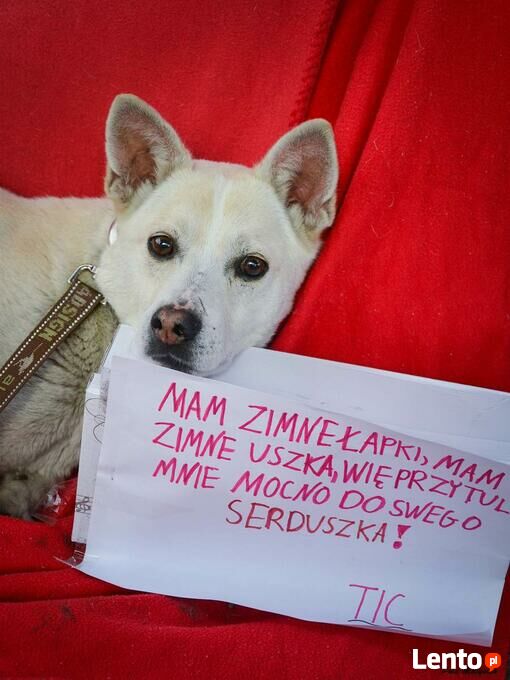 MAM ZIMNE ŁAPKI, MAM
ZIMNE USZKA, WIĘ PRZYTUL
MNIE MOCNO DO SWEGO
SERDUSZKA!
TIC
DESIGN
Lento.pl